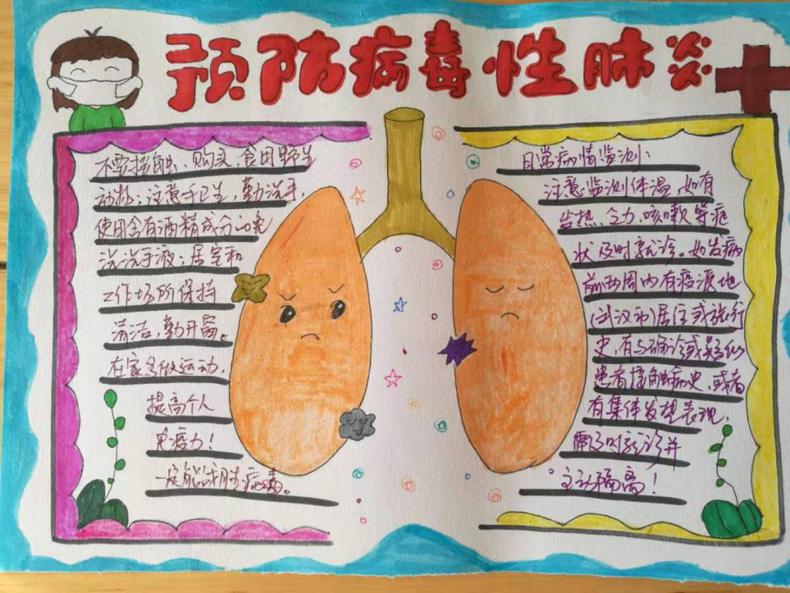 预防病毒性肺炎
不要接触、购买、食用野生
动物；注意手卫生，勤洗手，
使用含有酒精成分的免
洗洗手液；居室和
工作场所保持
清洁，勤开窗。
在家多做运动，
提高个人
免疫力！
一定能战胜病毒。
日常病情监测：
注意监测体温，如有
发热、乏力、咳嗽等症
状及时就诊。如发病
前两周内有疫源地
（武汉市）居住或旅行
史，有与确诊或疑似
患者接触病史，或者
有集体发热表现，
需及时就诊并
主动隔离！